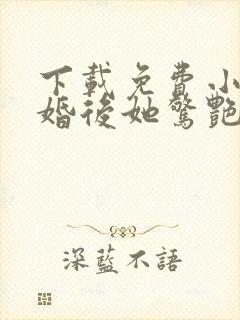 下載免費小
婚後她驚艷
深藍不語